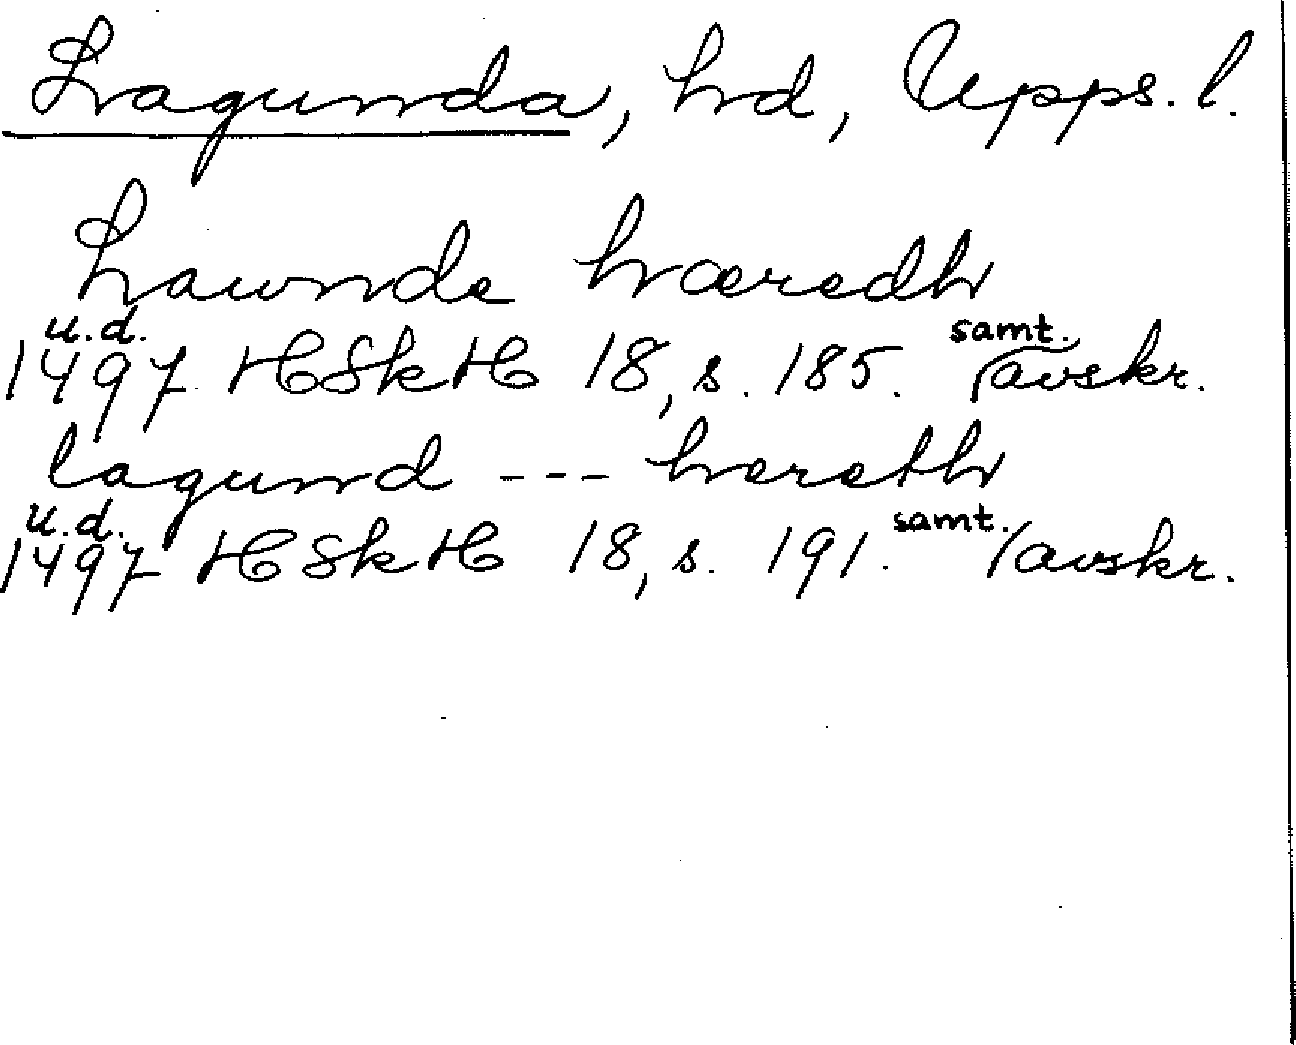 Lagunda, hd, Upps. l.
Lawnde hæredh
u.d. samt.
1497 HSkH 18, s. 185. (avskr.
lagund --- hereth
u.d. samt.
1497 HSkH 18, s. 191. (avskr.